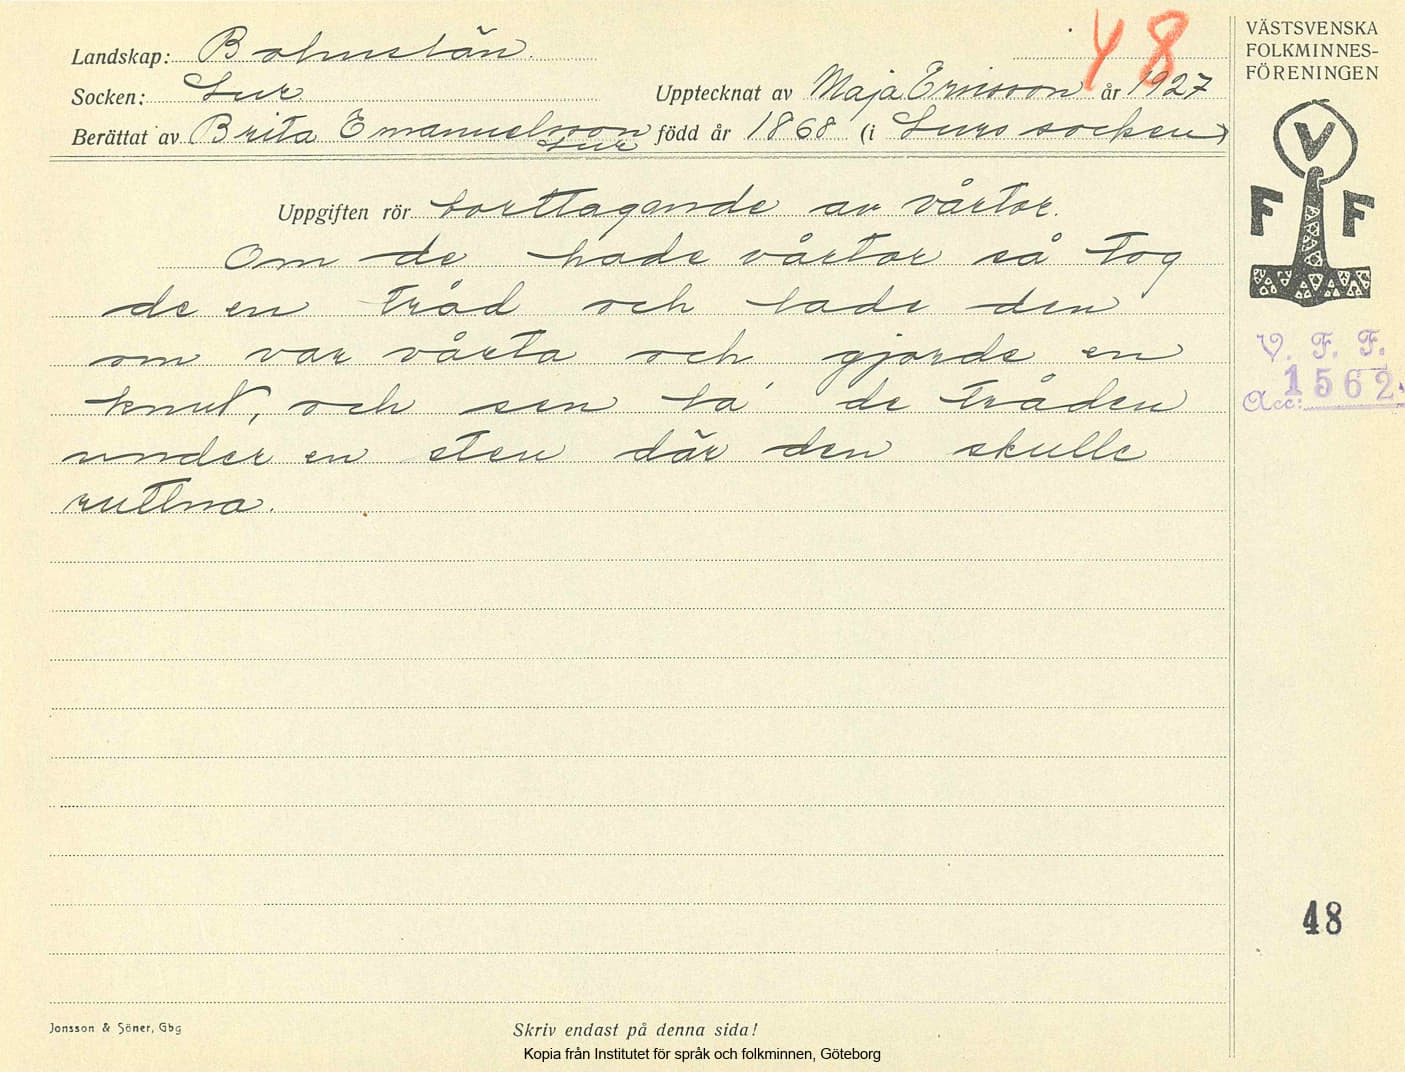 Landskap: Bohuslän.
48
Socken: Lur
Upptecknat av Maja Ericsson år 1927
Berättat av Brita Emanuelsson född år 1868 (i Lurs socken)
Lur
Uppgiften rör borttagande av vårtor.
Om de hade vårtor så tog
de en tråd och lade den
om var vårta och gjorde en
knut, och sen la de tråden
under en sten där den skulle
ruttna.
VÄSTSVENSKA
FOLKMINNES-
FÖRENINGEN
V
F F
V. F. F.
Acc: 1562.
48
Jonsson & Söner, Gbg
Skriv endast på denna sida!
Kopia från Institutet för språk och folkminnen, Göteborg